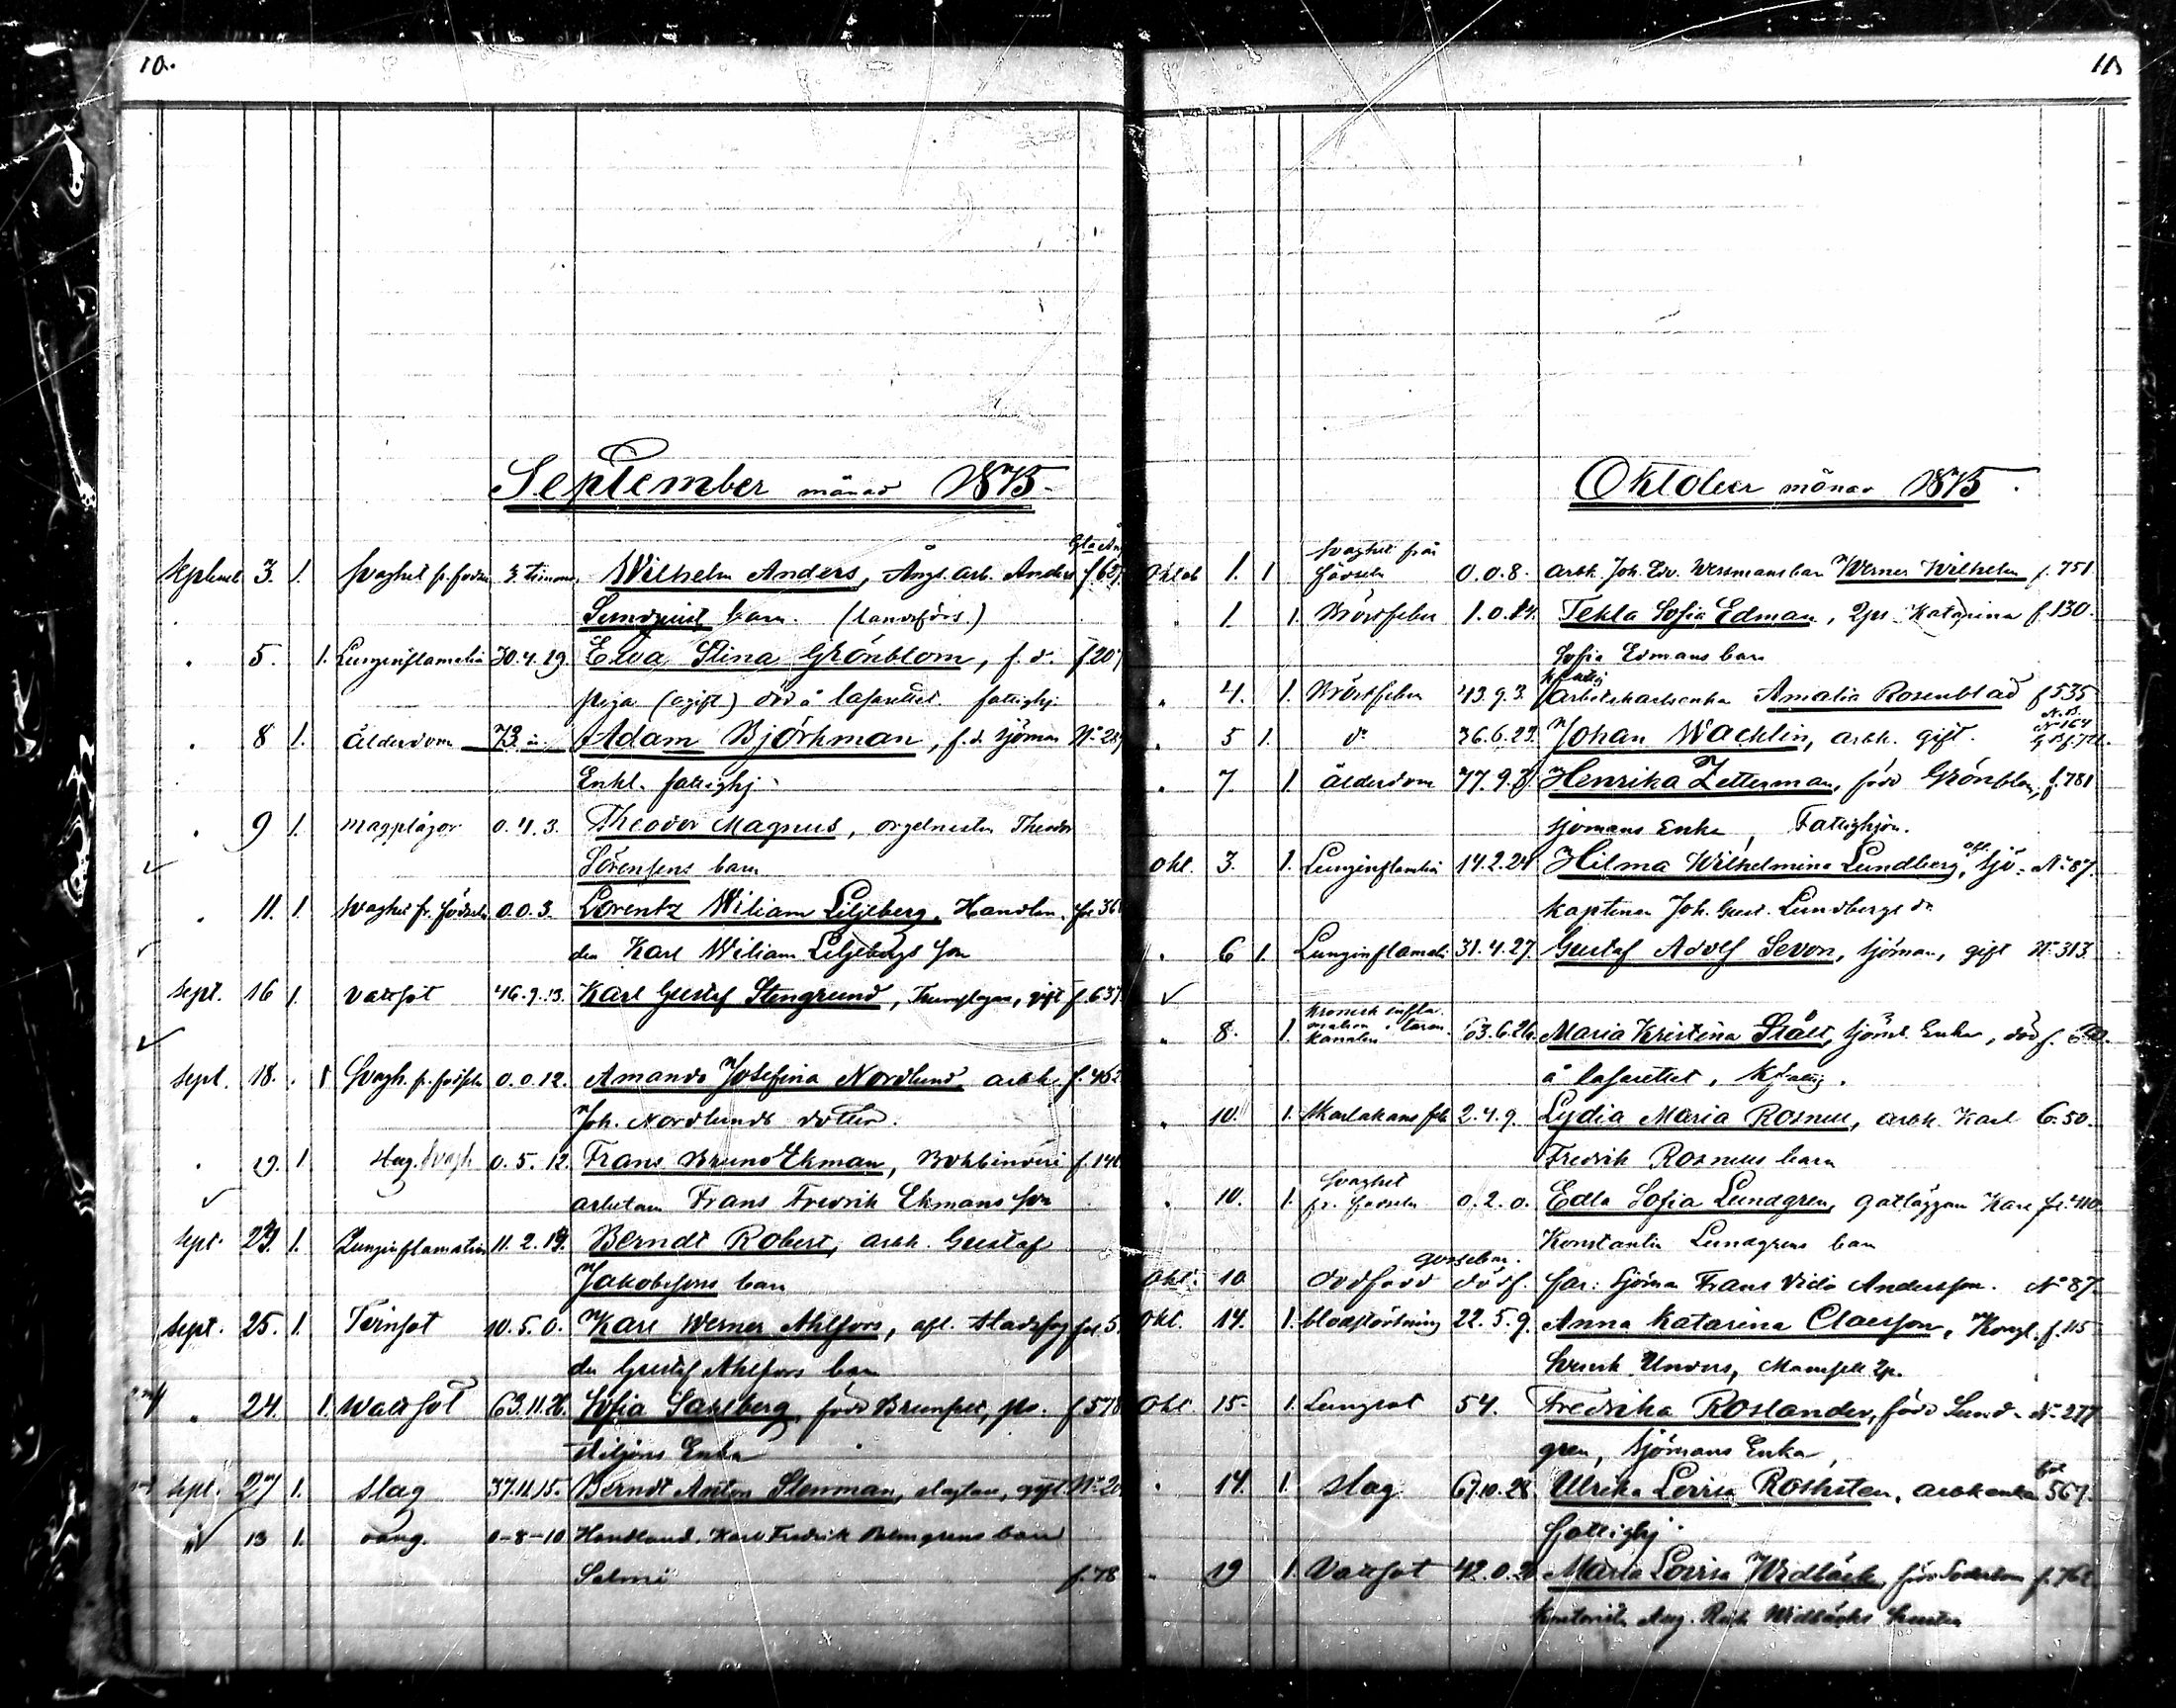 10.
September månad 1875.
Septemb 3. 1. Svaghet fr. födsel 3 timmar Wilhelm Anders, Ångf. arb. Anders f 627
Sundquist barn. (landsförs.)
" 5. 1. Lunginflamation 30.4.29. Eva Stina Grönblom, f.d. f 207
piga (ogift) död å lasarettet. fattighj.
" 8 1. ålderdom 73 år Adam Björkman, f.d. sjöman
Enkl. fattighj
" 9 1. magplågor 0.4.3. Theodor Magnus, orgelnisten Theodor
Sörensens barn
" 11. 1. Svaghet fr. födseln 0.0.3. Lorentz Wiliam Liljeberg, Handlan-
den Karl Wiliam Liljebergs son
Sept. 16 1. vattsot 46.9.13. Karl Gustaf Stengrund, gift f. 637
Sept. 18. 1 Svagh. fr. födseln 0.0.12. Amanda Josefina Nordlund arbk. f. 462
Joh. Nordlunds dotter.
" 1 Slag 0.5.12. Frans Bruno Ekman, Bokbinderi
arbetaren Frans Fredrik Ekmans son
Sept. 1. Lunginflamation 11.2.19. Berndt Robert, arbk. Gustaf
Jakobssons barn
Sept. 25. 1. Tvinsot 10.5.0. Karl Werner Ahlfors, afl. stadsfog- fol 5
den Gustaf Ahlfors barn
" 24. 1. Wattsot 63.11.26. Sofia Sahlberg, född f 578
Enka
Sept. 27 1. Slag 37.11.15. Berndt Anton Stenman, gift
13 1. 0-8-10 Handland. Karl Fredrik Palmgrens barn
Selmi f. 78
11.
Oktober månad 1875.
Svaghet från
Oktob 1. 1 födseln 0.0.8. arbk. Joh. Edv. Wessmans barn Werner Wilhelm f. 751
1 1. Bröstfeber 1.0.14. Tekla Sofia Edman, Katarina f. 130.
Sofia Edmans barn
" 4. 1. Bröstfeber 43.9.3. arbetskarlsenka Amalia Rosenblad f 535
" 5 1. do 36.6.23. Johan Wacklin, arbk. gift. No 164
" 7 1 ålderdom 77.9.3. Henrika Zetterman, född Grönblom, f. 781
sjömans Enka, Fattighjon.
Okt. 3. 1. Lunginflamation 14.2.24 Hilma Wilhelmina Lundberg, afl. sjö- No 87.
kaptenen Joh. Gust. Lundbergs dr.
" 6 1. Lunginflamation 31.4.27. Gustaf Adolf Sevon, sjöman, gift No 313.
kronisk infla-
" 8. 1. mation i tarm- 63.6.26. Maria Kristina Stålt, sjöm. Enka, död
kanalen
å lasarettet,
" 10. 1. Skarlakansfeb 2.4.9. Lydia Maria Rosnell, arbk. Karl 6.50.
Fredrik Rosnells barn
Svaghet
" 10. 1. fr. födseln 0.2.0. Edla Sofia Lundgren, gatläggaren Karl fol. 410
Konstantin Lundgrens barn
gossebarn.
Okt. 10 dödfödd dödf. far: Sjöman Frans Vide Andersson. No 87.
Okt. 14. 1. blodstörtning 22.5.9. Anna Katarina Claesson, Kongl. f. 115
Svensk Unders, Mamsell
Okt 15. 1. Lungsot 54. Fredrika Roslander, född Lund- No 277
gren, sjömans Enka,
" 14. 1. Slag 67.10.28. Ulrika Lovisa Roshsten, arbk enka fol 567.
fattighj.
" 19 1. Vattsot 42.0. Maria Lovisa Widbäck, född Söderbom
Kontorist. Aug. Widbäcks hustru